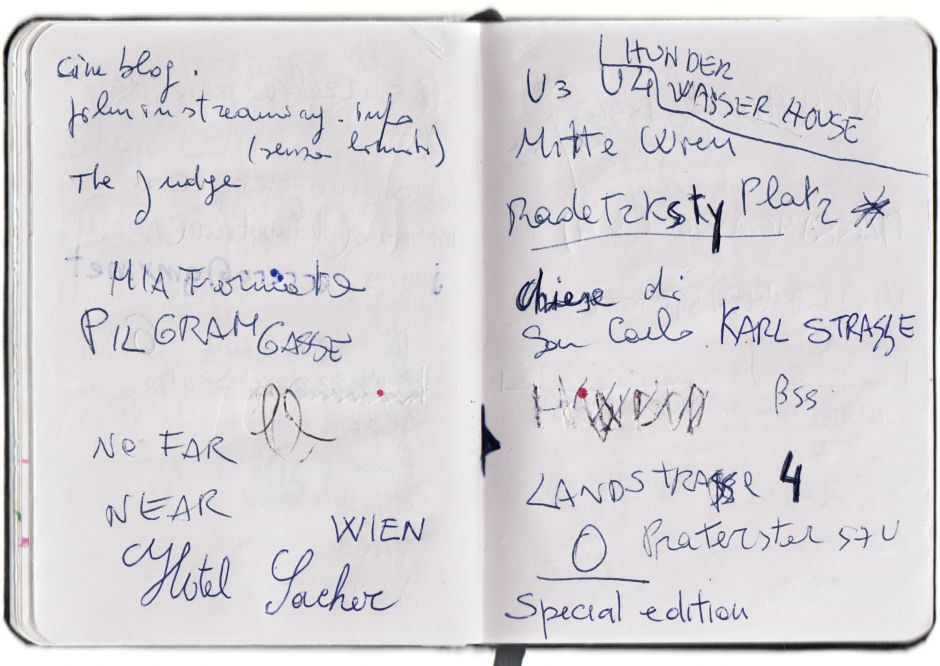 cineblog.
filminstreaming.info
(senza limiti)
The Judge
MIA Fermata
PILGRAM GASSE
NO FAR
NEAR
WIEN
Hotel Sacher
HUNDER
U3 U4 WASSER HOUSE
Mitte Wien
Radetzksty Platz
chiesa di
San Carlo KARL STRASSE
βss
LANDSTRASSE 4
O Praterster
Special edition